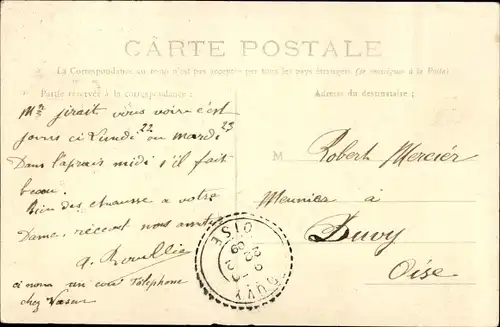 CARTE POSTALE
La Correspondance au recto n'est pas acceptée par tous les pays étrangers (se renseigner à la Poste)
Partie réservée à la correspondance :
Adresse du destinataire :
Mr jirait vous voire c'est
jours ci Lundi 22 ou mardi 23
Dans l'aprais midi s'il fait
beau.
Bien des chausse a votre
Dame, récevet nous amitiés
a. Roullie
ci nous un coup Téléphone
chez Vasseur
M Robert Mercier
Meunier à
Duvy
Oise
DUVY
OISE